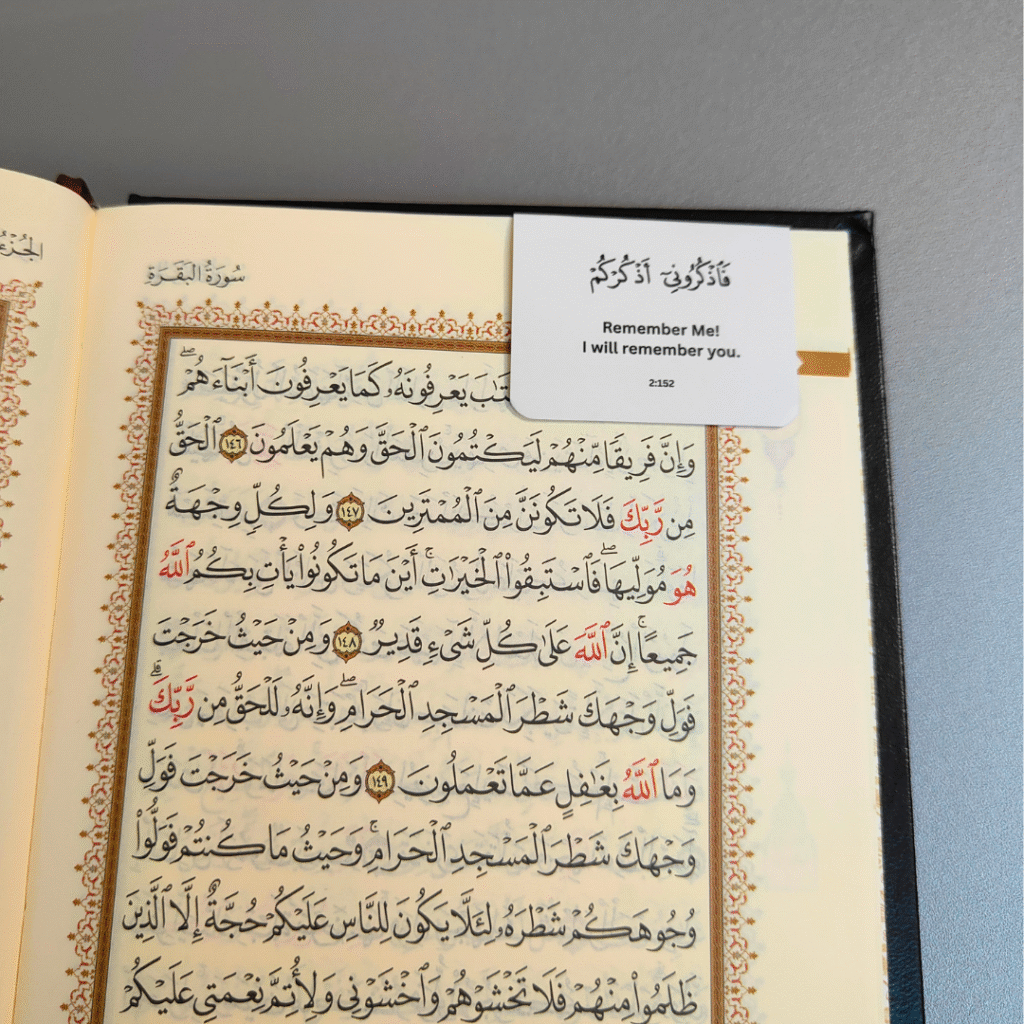 الجُزْءُ
سُورَةُ البَقَرَةِ
فَٱذْكُرُونِىٓ أَذْكُرْكُمْ
Remember Me!
I will remember you.
2:152
يَعْرِفُونَهُۥ كَمَا يَعْرِفُونَ أَبْنَآءَهُمْ ۖ
وَإِنَّ فَرِيقًا مِّنْهُمْ لَيَكْتُمُونَ ٱلْحَقَّ وَهُمْ يَعْلَمُونَ ١٤٦ ٱلْحَقُّ
مِن رَّبِّكَ فَلَا تَكُونَنَّ مِنَ ٱلْمُمْتَرِينَ ١٤٧ وَلِكُلٍّ وِجْهَةٌ
هُوَ مُوَلِّيهَا ۖ فَٱسْتَبِقُوا۟ ٱلْخَيْرَٰتِ ۚ أَيْنَ مَا تَكُونُوا۟ يَأْتِ بِكُمُ ٱللَّهُ
جَمِيعًا ۚ إِنَّ ٱللَّهَ عَلَىٰ كُلِّ شَىْءٍ قَدِيرٌ ١٤٨ وَمِنْ حَيْثُ خَرَجْتَ
فَوَلِّ وَجْهَكَ شَطْرَ ٱلْمَسْجِدِ ٱلْحَرَامِ ۖ وَإِنَّهُۥ لَلْحَقُّ مِن رَّبِّكَ ۗ
وَمَا ٱللَّهُ بِغَٰفِلٍ عَمَّا تَعْمَلُونَ ١٤٩ وَمِنْ حَيْثُ خَرَجْتَ فَوَلِّ
وَجْهَكَ شَطْرَ ٱلْمَسْجِدِ ٱلْحَرَامِ ۚ وَحَيْثُ مَا كُنتُمْ فَوَلُّوا۟
وُجُوهَكُمْ شَطْرَهُۥ لِئَلَّا يَكُونَ لِلنَّاسِ عَلَيْكُمْ حُجَّةٌ إِلَّا ٱلَّذِينَ
ظَلَمُوا۟ مِنْهُمْ فَلَا تَخْشَوْهُمْ وَٱخْشَوْنِى وَلِأُتِمَّ نِعْمَتِى عَلَيْكُمْ